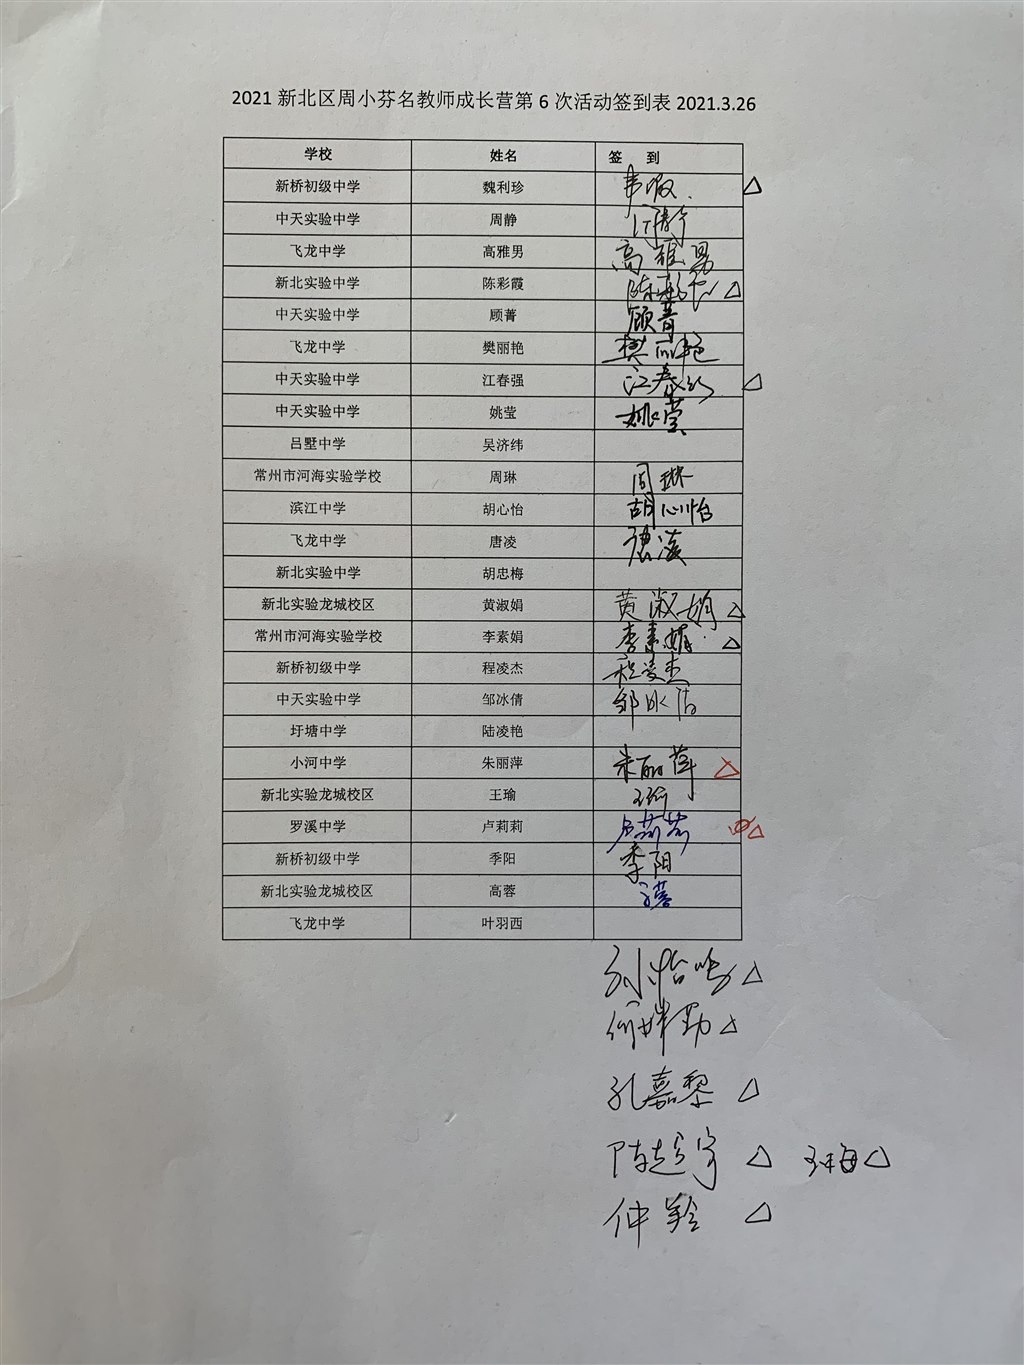 2021 新北区周小芬名教师成长营第 6 次活动签到表 2021.3.26
学校 姓名 签 到
新桥初级中学 魏利珍
中天实验中学 周静 周静
飞龙中学 高雅男 高雅男
新北实验中学 陈彩霞 陈彩霞
中天实验中学 顾菁 顾菁
飞龙中学 樊丽艳 樊丽艳
中天实验中学 江春强 江春强
中天实验中学 姚莹 姚莹
吕墅中学 吴济纬
常州市河海实验学校 周琳 周琳
滨江中学 胡心怡 胡心怡
飞龙中学 唐凌 唐凌
新北实验中学 胡忠梅
新北实验龙城校区 黄淑娟 黄淑娟
常州市河海实验学校 李素娟 李素娟
新桥初级中学 程凌杰 程凌杰
中天实验中学 邹冰倩 邹冰倩
圩塘中学 陆凌艳
小河中学 朱丽萍 朱丽萍
新北实验龙城校区 王瑜 王瑜
罗溪中学 卢莉莉 卢莉莉
新桥初级中学 季阳 季阳
新北实验龙城校区 高蓉 高蓉
飞龙中学 叶羽西
孔嘉黎
陈超宇
仲羚